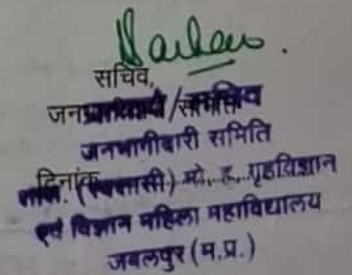 सचिव,
जनभागीदारी समिति
दिनांक
शास. (स्वशासी) मो. ह. गृहविज्ञान
एवं विज्ञान महिला महाविद्यालय
जबलपुर (म.प्र.)